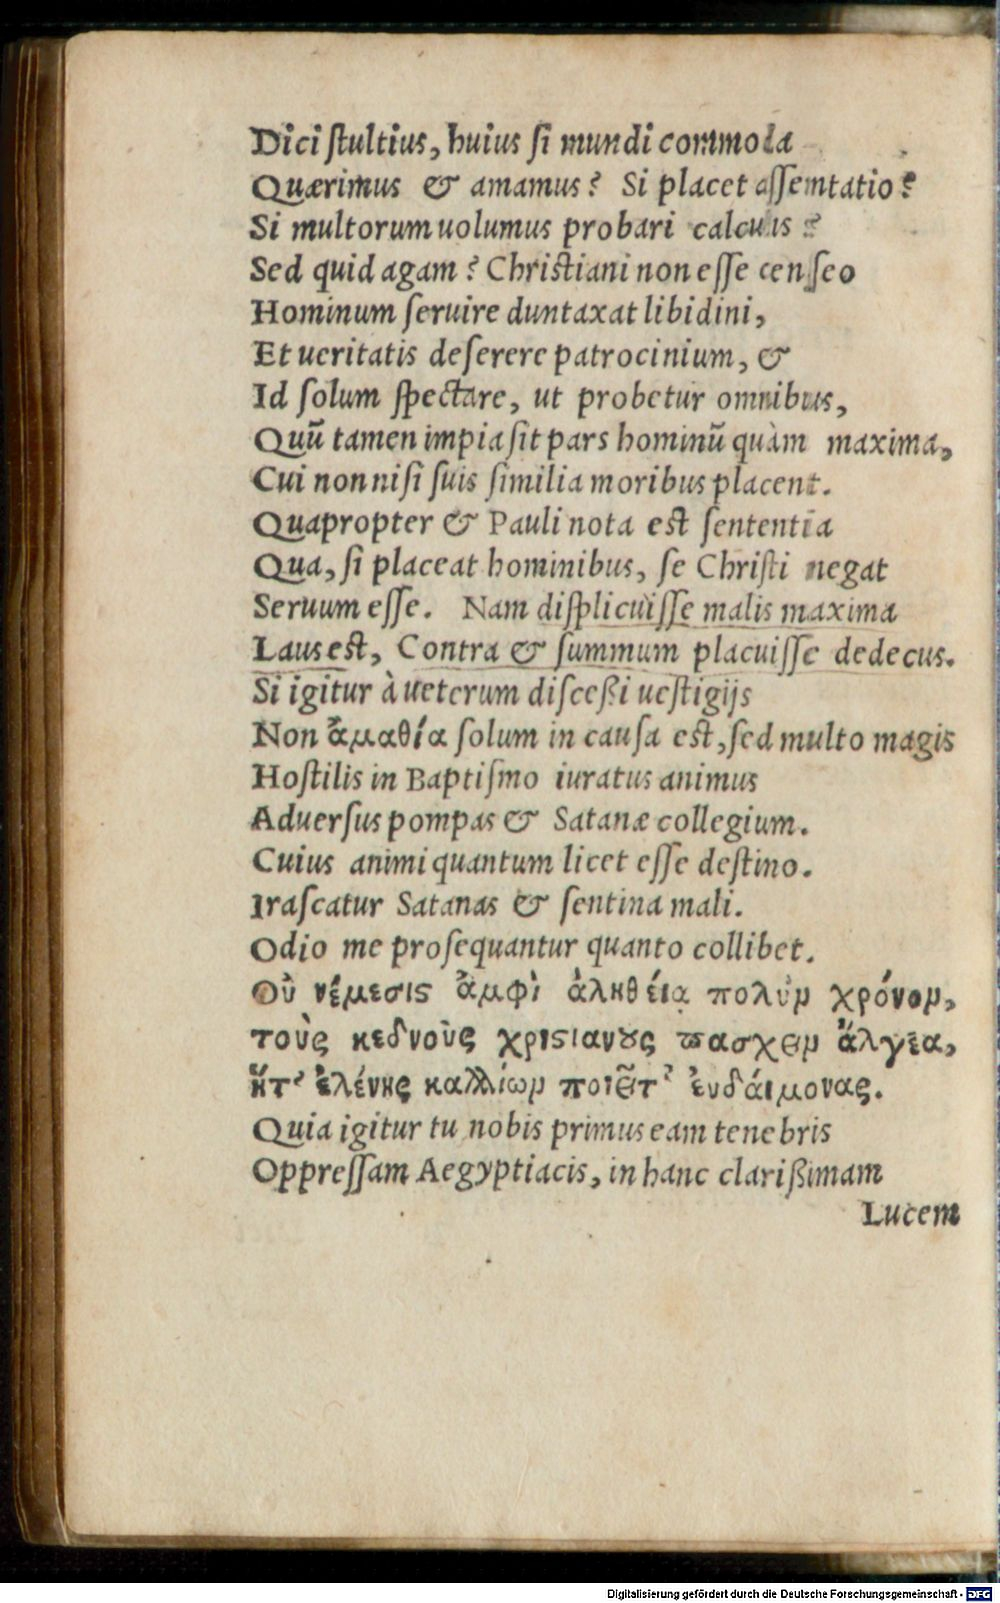 Dici ſtultius, huius ſi mundi commoda
Quærimus & amamus? Si placet aſſentatio?
Si multorum uolumus probari calculis?
Sed quid agam? Chriſtiani non eſſe cenſeo
Hominum ſeruire duntaxat libidini,
Et ueritatis deſerere patrocinium, &
Id ſolum ſpectare, ut probetur omnibus,
Quũ tamen impia ſit pars hominũ quàm maxima,
Cui non niſi ſuis ſimilia moribus placent.
Quapropter & Pauli nota eſt ſententia
Qua, ſi placeat hominibus, ſe Chriſti negat
Seruum eſſe. Nam diſplicuiſſe malis maxima
Laus eſt, Contra & ſummum placuiſſe dedecus.
Si igitur à ueterum diſceßi ueſtigijs
Non ἀμαθία ſolum in cauſa eſt, ſed multo magis
Hoſtilis in Baptiſmo iuratus animus
Aduerſus pompas & Satanæ collegium.
Cuius animi quantum licet eſſe deſtino.
Iraſcatur Satanas & ſentina mali.
Odio me proſequantur quanto collibet.
Οὐ νέμεσις ἀμφὶ ἀληθείᾳ πολὺν χρόνον,
τοὺς κεδνοὺς χριστιανοὺς πασχειν ἄλγεα,
ἥτ᾽ ἑλένης καλλίων ποιεῖτ᾽ ἐυδάιμονας.
Quia igitur tu nobis primus eam tenebris
Oppreſſam Aegyptiacis, in hanc clarißimam
Lucem
Digitalisierung gefördert durch die Deutsche Forschungsgemeinschaft - DFG